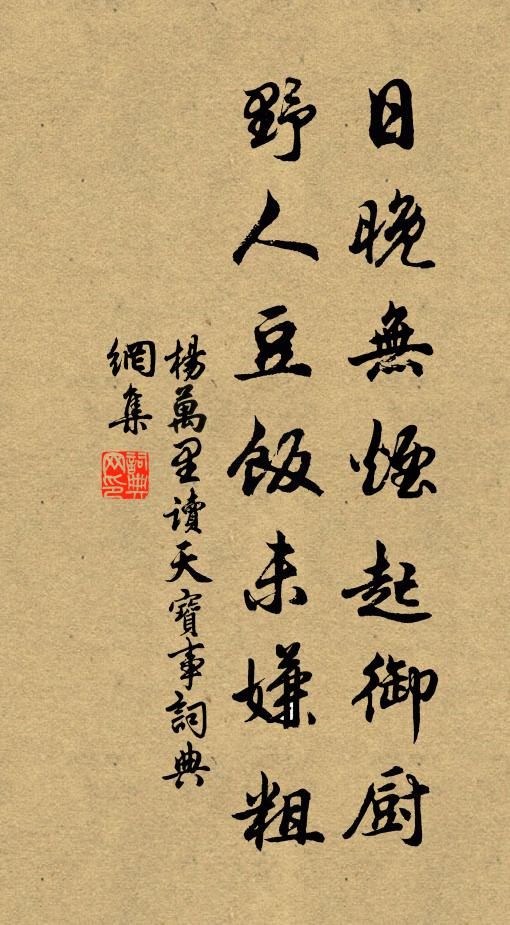 日晚無煙起御厨
野人豆飯未嫌粗
楊萬里讀天寶事詞典
網集
詞典
网印